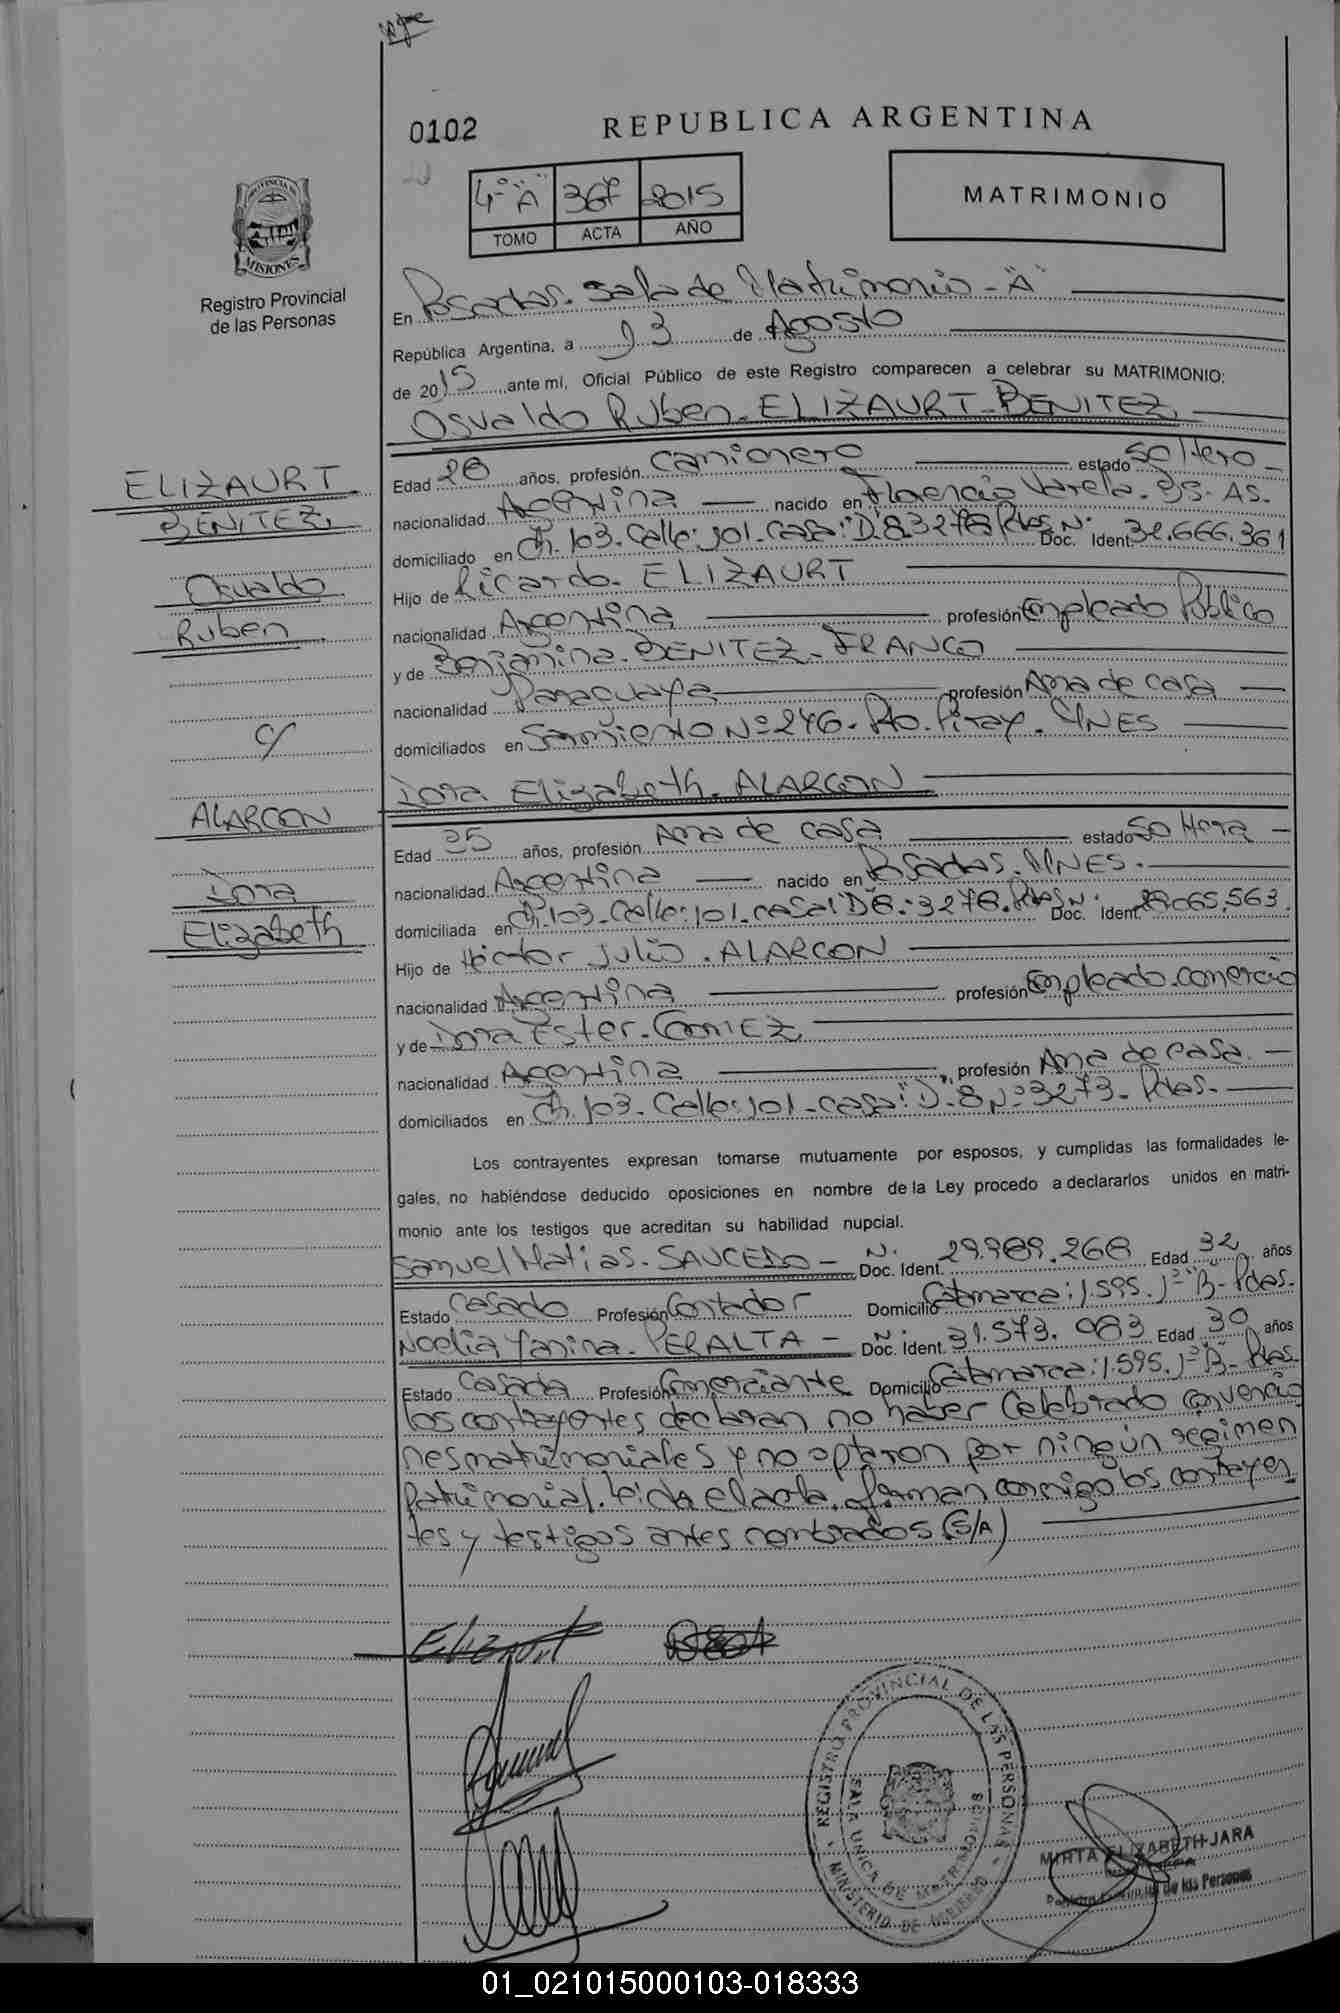 0102
REPUBLICA ARGENTINA
4º "A" 367 2015
TOMO ACTA AÑO
MATRIMONIO
PROVINCIA DE MISIONES
Registro Provincial
de las Personas
En Posadas. Sala de Matrimonio - "A"
República Argentina, a 13 de Agosto
de 2015, ante mí, Oficial Público de este Registro comparecen a celebrar su MATRIMONIO:
Osvaldo Ruben. ELIZAURT-BENITEZ
ELIZAURT
BENITEZ
Osvaldo
Ruben
c/
ALARCON
Dora
Elizabeth
Edad 28 años, profesión Camionero estado Soltero
nacionalidad Argentina nacido en Florencio Varela. Bs. As.
domiciliado en Ch. 103. Calle: 101. Casa: "D" 8. 3278 Pdas. Nº Doc. Ident. 32.666.361
Hijo de Ricardo. ELIZAURT
nacionalidad Argentina profesión Empleado Público
y de Benjamina. BENITEZ-FRANCO
nacionalidad Paraguaya profesión Ama de casa
domiciliados en Sarmiento Nº 246. Pto. Piray. MNES
Dora Elizabeth. ALARCON
Edad 35 años, profesión Ama de casa estado Soltera
nacionalidad Argentina nacido en Posadas. MNES.
domiciliada en Ch. 103. Calle: 101. casa: D 8: 3278. Pdas. Nº Doc. Ident. 28.065.563.
Hijo de Héctor Julio. ALARCON
nacionalidad Argentina profesión Empleado. comercio
y de Dora Ester. GOMEZ
nacionalidad Argentina profesión Ama de casa.
domiciliados en Ch. 103. Calle: 101. casa: "D" 8 Nº 3273. Pdas.
Los contrayentes expresan tomarse mutuamente por esposos, y cumplidas las formalidades le-
gales, no habiéndose deducido oposiciones en nombre de la Ley procedo a declararlos unidos en matri-
monio ante los testigos que acreditan su habilidad nupcial.
Samuel Matias. SAUCEDO Nº Doc. Ident. 29.989.268 Edad 32 años
Estado Casado Profesión Contador Domicilio Catamarca: 1.595. 1º "B". Pdas.
Noelia Yanina. PERALTA Nº Doc. Ident. 31.573.083 Edad 30 años
Estado Casada Profesión Comerciante Domicilio Catamarca: 1.595. 1º "B". Pdas.
los contrayentes declaran no haber celebrado convencio
nes matrimoniales y no optaron por ningún régimen
patrimonial. Leida el acta, firman conmigo los contrayen
tes y testigos antes nombrados (S/A)
Elizaurt
REGISTRO PROVINCIAL DE LAS PERSONAS
SALA UNICA DE MATRIMONIOS
MINISTERIO DE GOBIERNO
MIRTA ELIZABETH JARA
Registro Provincial de las Personas
01_021015000103-018333